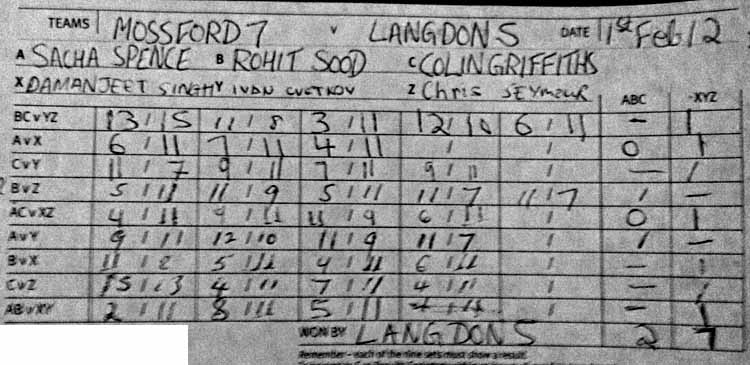 TEAMS MOSSFORD 7 V LANGDON 5 DATE 1st Feb 12
A SACHA SPENCE B ROHIT SOOD C COLIN GRIFFITHS
X DAMANJEET SINGH Y IVAN CVETKOV Z Chris SEYMOUR ABC XYZ
BC v YZ 13 / 15 11 / 8 3 / 11 12 / 10 6 / 11 - 1
A v X 6 / 11 7 / 11 4 / 11 / / 0 1
C v Y 11 / 7 9 / 11 7 / 11 9 / 11 / - 1
B v Z 5 / 11 11 / 9 5 / 11 11 / 7 11 / 7 1 -
AC v XZ 4 / 11 9 / 11 11 / 9 6 / 11 / 0 1
A v Y 9 / 11 12 / 10 11 / 9 11 / 7 / 1 -
B v X 11 / 2 5 / 11 9 / 11 6 / 11 / - 1
C v Z 15 / 13 4 / 11 7 / 11 4 / 11 / - 1
AB v XY 2 / 11 8 / 11 5 / 11 / - 1
WON BY LANGDON 5 2 7
Remember - each of the nine sets must show a result.